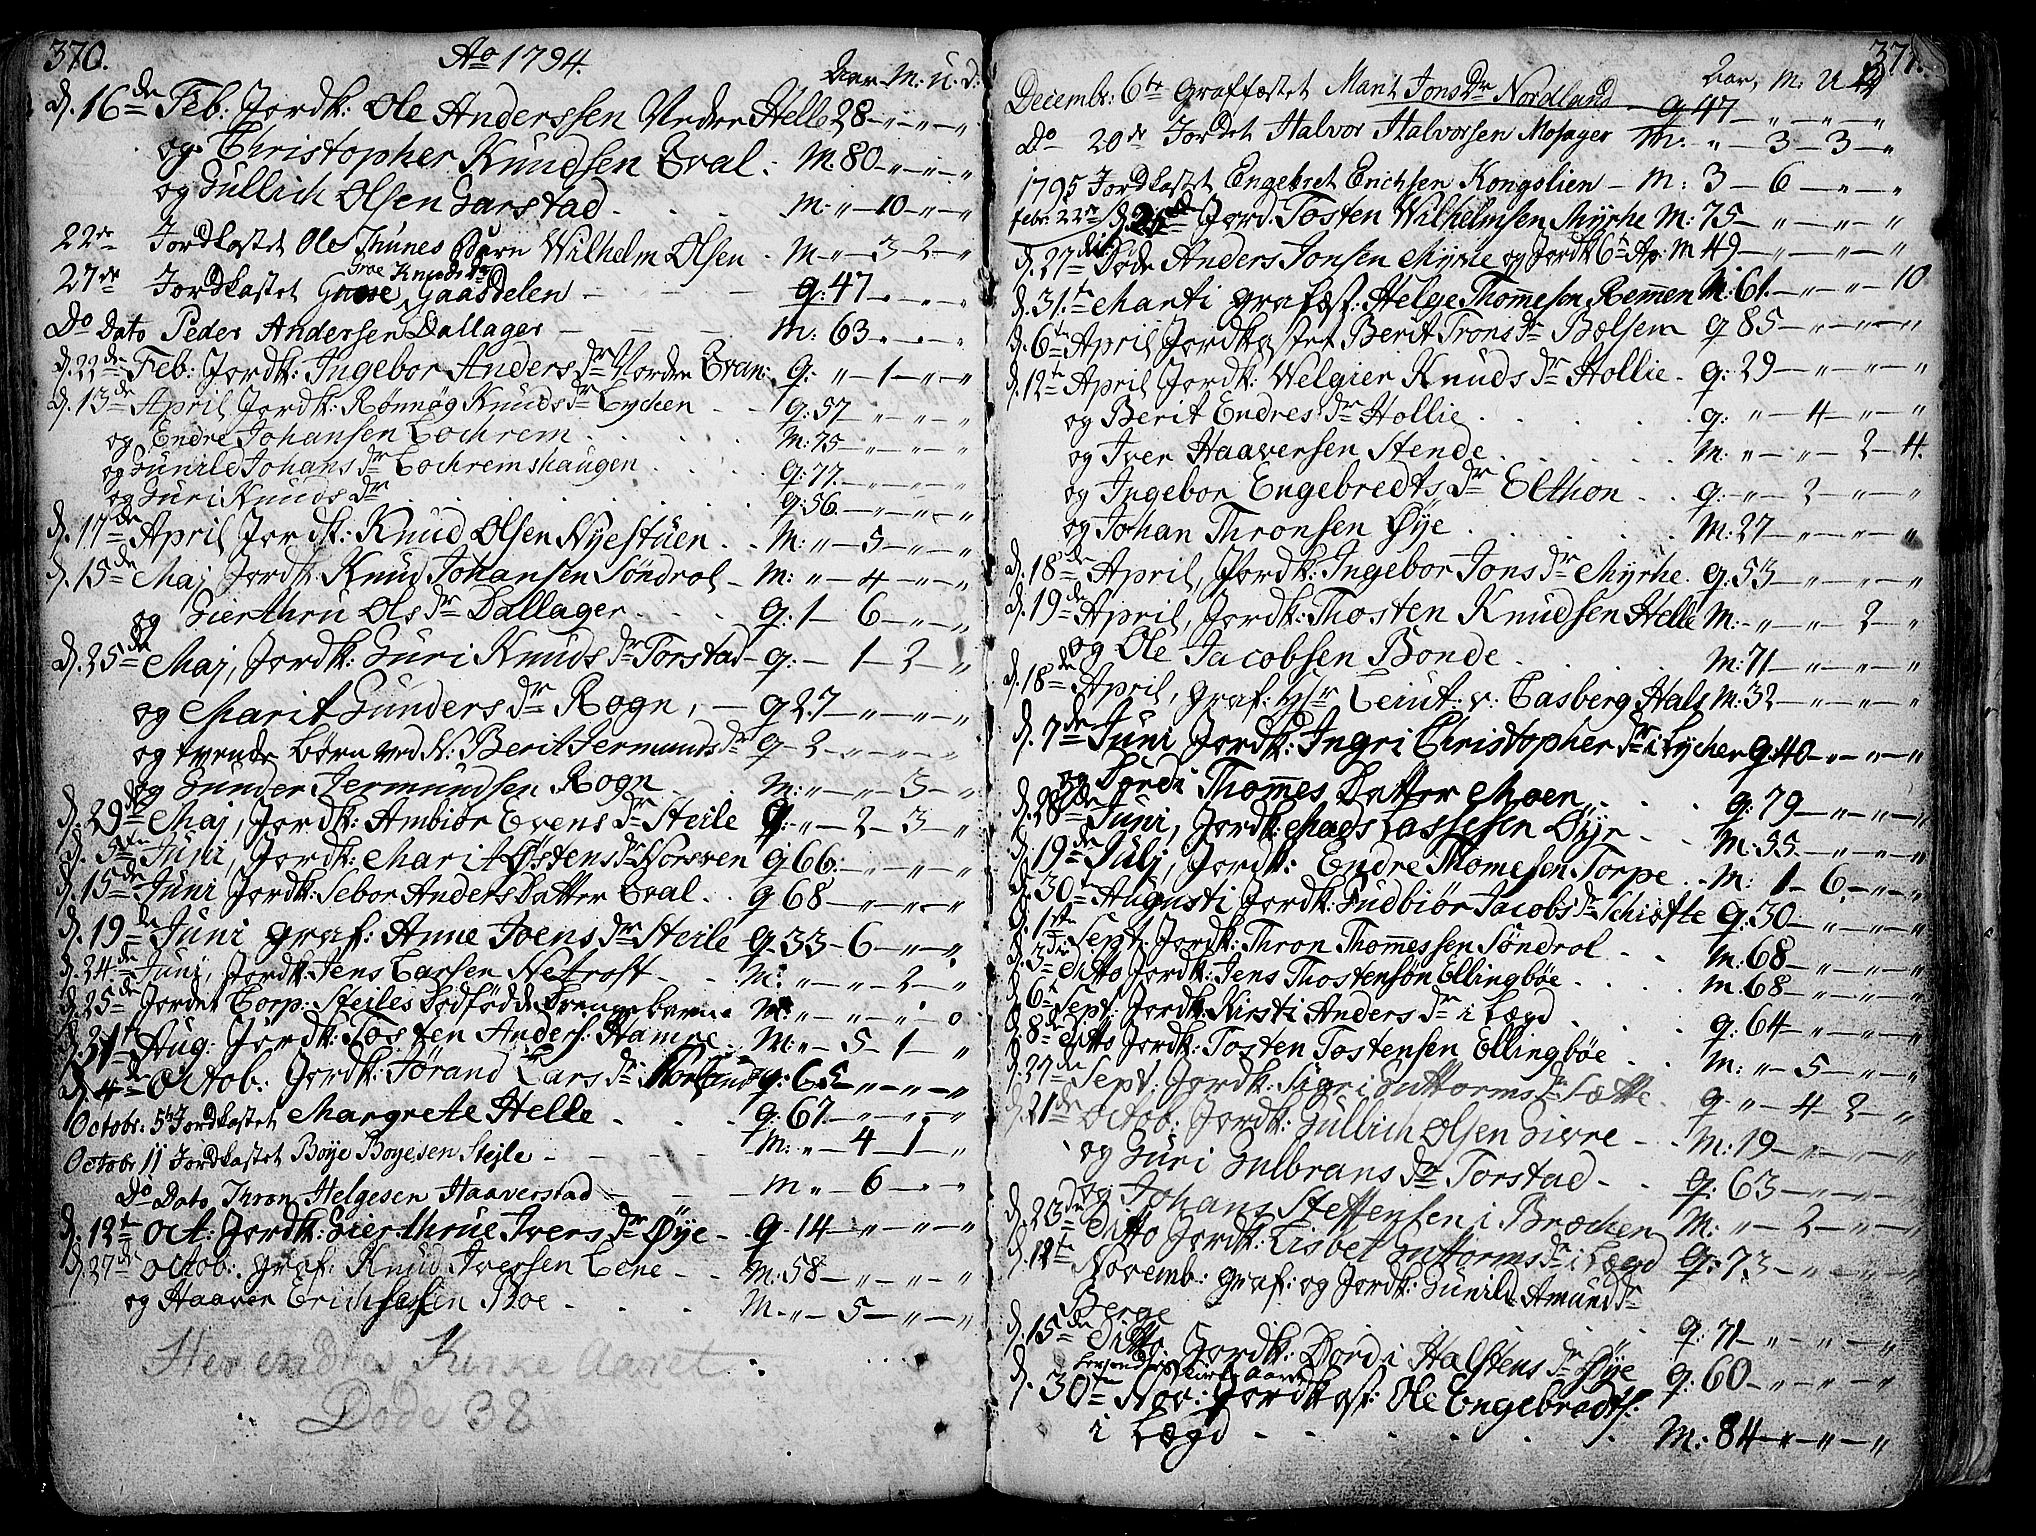 370.
Ao 1794.
Aar. M. U. D:
d. 16de Feb: Jordk: Ole Anderssen Nedre Helle 28 — „ — „ — „
og Christopher Knudsen Qval. M. 80 — „ — „ — „
og Gullich Olsen Garstad . . . M: „ — 10 — „ — „
22de Jordkastet Ole Thunes Barn Wilhelm Olsen . M — „ — 3 — 2 — „
Groe Knuds Dr
27de Jordkastet Gaasdelen — — — q: 47 — „ — „ — „
Do Dato Peder Andersen Dallager — — — M: 63 — „ — „ — „
d. 22de Feb: Jordk: Ingebor Anders Dr Nordre Qvam: q: „ — 1 — „ — „
d. 13de April Jordk: Rønnøg Knuds Dr Lychen . . q: 57 — „ — „ — „
og Endre Johansen Lochrem . . . . M: 75 — „ — „ — „
og Gunild Johans Dr Lochremshaugen . . . q: 77 — „ — „ — „
og Guri Knuds Dr . . . q: 56 — „ — „ — „
d. 17de April Jordk: Knud Olsen Nyestuen . . M: „ — 5 — „ — „
d. 15de Maj Jordk: Knud Johansen Søndrol — M: „ — 4 — „ — „
og Gierthru Ols Dr Dallager . . . q: 1 — 6 — „ — „
d. 25de Maj, Jordk: Guri Knuds Dr Torstad — q: — 1 — 2 — „
og Marit Gunders Dr Rogn, — q 27 — „ — „ — „
og tvende børn ved N: Berit Jermunds Dr q — 2 — „ — „ — „
og Gunder Jermundsen Rogn . . M: „ — „ — 5 — „
d. 29de Maj, Jordk: Ambiør Evens Dr Steile q: „ — 2 — 3 — „
d. 5te Juni, Jordk: Marit Østens Dr Norsven q 66: — „ — „ — „
d. 15de Juni Jordk: Sebor Anders Datter Qval . . q 68 — „ — „ — „
d. 19de Juni graf: Anne Joens Dr Steile q. 33 — 6 — „ — „
d. 24de Juni, Jordk: Jens Larsen Nefrost — . . M: „ — „ — 2 — „
d. 25de Jordet Corp: Steiles dødfødde drengebarn M: „ — „ — „ — 0
d. 31te Aug: Jordk: Tosten Anders: Hamre . M: „ — 5 — 1 — „
d. 4de Octob: Jordk: Jørand Lars Dr q: 65 — „ — „ — „
Octobr. 5te Jordkastet Margrete Helle . . . q: 67 — „ — „ — „
Octobr 11 Jordkastet Bøye Boyesen Stejle — — — — M: „ — 4 — 1 — „
Do Dato Thron Helgesen Haaverstad — — — M „ — 6 — „ — „
d. 12te Oct: Jordk: Gierthrue Ivers Dr Øÿe — . q — 14 — „ — „ — „
d. 27de Octob: graf: Knud Iversen Lene — . . M: 58 — „ — „ — „
og Haaver Erichsen Boe . . . . M. „ — 5 — „ — „
Her endes Kirke Aaret
Døde 38
371.
Aar, M: U D
Decembr: 6te Graffæstet Marit Jons Dr Nordland — q 47 — „ — „ — „
Do 20de Jordet Halvor Halvorsen Mosager M: „ — 3 — 3 — „
1795 Jordkastet Engebret Erichsen Kongslien — M: 3 — 6 — „ — „
Febr. 22de d. 25de Jord. Tosten Wilhelmsen Myrhe M: 75 — „ — „ — „
d. 27de døde Anders Jonsen Myrhe og Jordk 6te Ap: M 49 — „ — „ — „
d. 31te Marti grafæst: Helge Thomesen Remmen M: 61. — „ — „ — 10
d. 6te April Jordkastet Berit Trons Dr Bælsem q 85 — „ — „ — „
d. 12te April Jordk: Welgier Knuds Dr Hollie . q: 29 — „ — „ — „
og Berit Endres Dr Hollie . . . . q: „ — 4 — „ — „
og Iver Haaversen Stende . . . . M: „ — „ — 2 — 4.
og Ingebor Engebredts Dr Elthon . . q: „ — 2 — „ — „
og Johan Thronsen Øye . . . . M: 27 — „ — „ — „
d. 18de April, Jordk: Ingebor Jons Dr Myrhe . q: 53 — „ — „ — „
d. 19de April, Jordk: Thosten Knudsen Helle M: — „ — „ — 2 — „
og Ole Jacobsen Bonde . . . . M: 71 — „ — „ — „
d. 18de April, graf: Hr Leiut: v: Casberg Hals M: 32 — „ — „ — „
d. 7de Juni Jordk: Ingri Christopher Dr i Lycher q: 40 — „ — „ — „
og Dordi Thomes Datter Moen . . . q: 79 — „ — „ — „
d. 28de Juni, Jordk: Mads Lassesen Øÿe — . . M: 55 — „ — „ — „
d. 19de Julj, Jordk: Endre Thomesen Torpe . . M: 1 — 6 — „ — „
d. 30te Augusti Jordk: Gudbiør Jacobs Dr Schiøfte q: 30 — „ — „ — „
d. 1ste Sept: Jordk: Thron Thomessen Søndrol . . M: 68 — „ — „ — „
d. 3de Ditto Jordk: Jens Thostensøn Ellingbøe . . . . M. 68 — „ — „ — „
d. 6te Sept: Jordk: Kirsti Anders Dr i Lægd . . . q: 64 — „ — „ — „
d. 8de Ditto Jordk: Tosten Tostensen Ellingbøe . . M: „ — 5 — „ — „
d. 27de Sept: Jordk: Sigri Guttorms Dr Sætte . q „ — 4 — 2 — „
d. 21de Octob: Jordk: Gullich Olsen Givre — . . M: 19 — „ — „ — „
og Guri Gulbrans Dr Torstad — . . q: 63 — „ — „ — „
og Johans Steffensen i Bræchen M: „ — 2 — „ — „
d. 23de Ditto Jordk: Lisbet Guttorms Dr i Lægd q: 73 — „ — „ — „
d. 12te Novemb: graf: og Jordk: Gunild Amunds Dr
Berge . . . . q: 71 — „ — „ — „
d. 15de Ditto Jordk: Dordi Halstens Dr Øÿe q: 60 — „ — „ — „
d. 30te Nov: Jordkast: Ole Engebredts:
i Lægd — — — — M: 84 — „ — „ — „